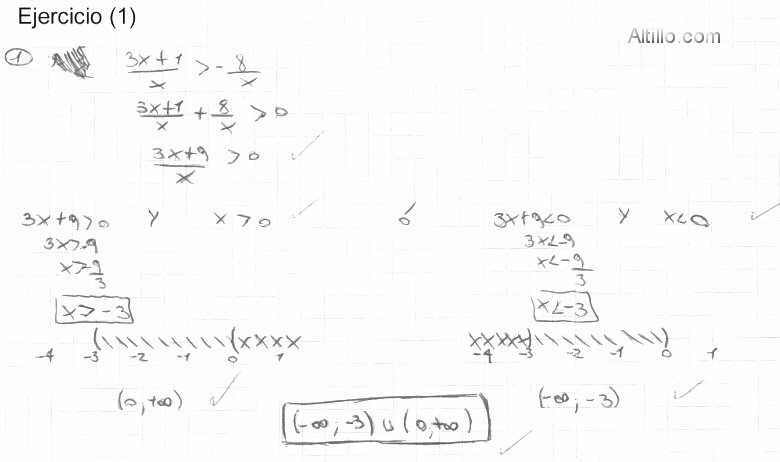 Ejercicio (1)
Altillo.com
1
3x+1/x > -8/x
3x+1/x + 8/x > 0
3x+9/x > 0
3x+9>0 y x>0 ó 3x+9<0 y x<0
3x>-9
x>-9/3
x>-3
3x<-9
x<-9/3
x<-3
-4 -3 -2 -1 0 1
-4 -3 -2 -1 0 1
(0,+∞)
(-∞; -3)
(-∞; -3) ∪ (0,+∞)